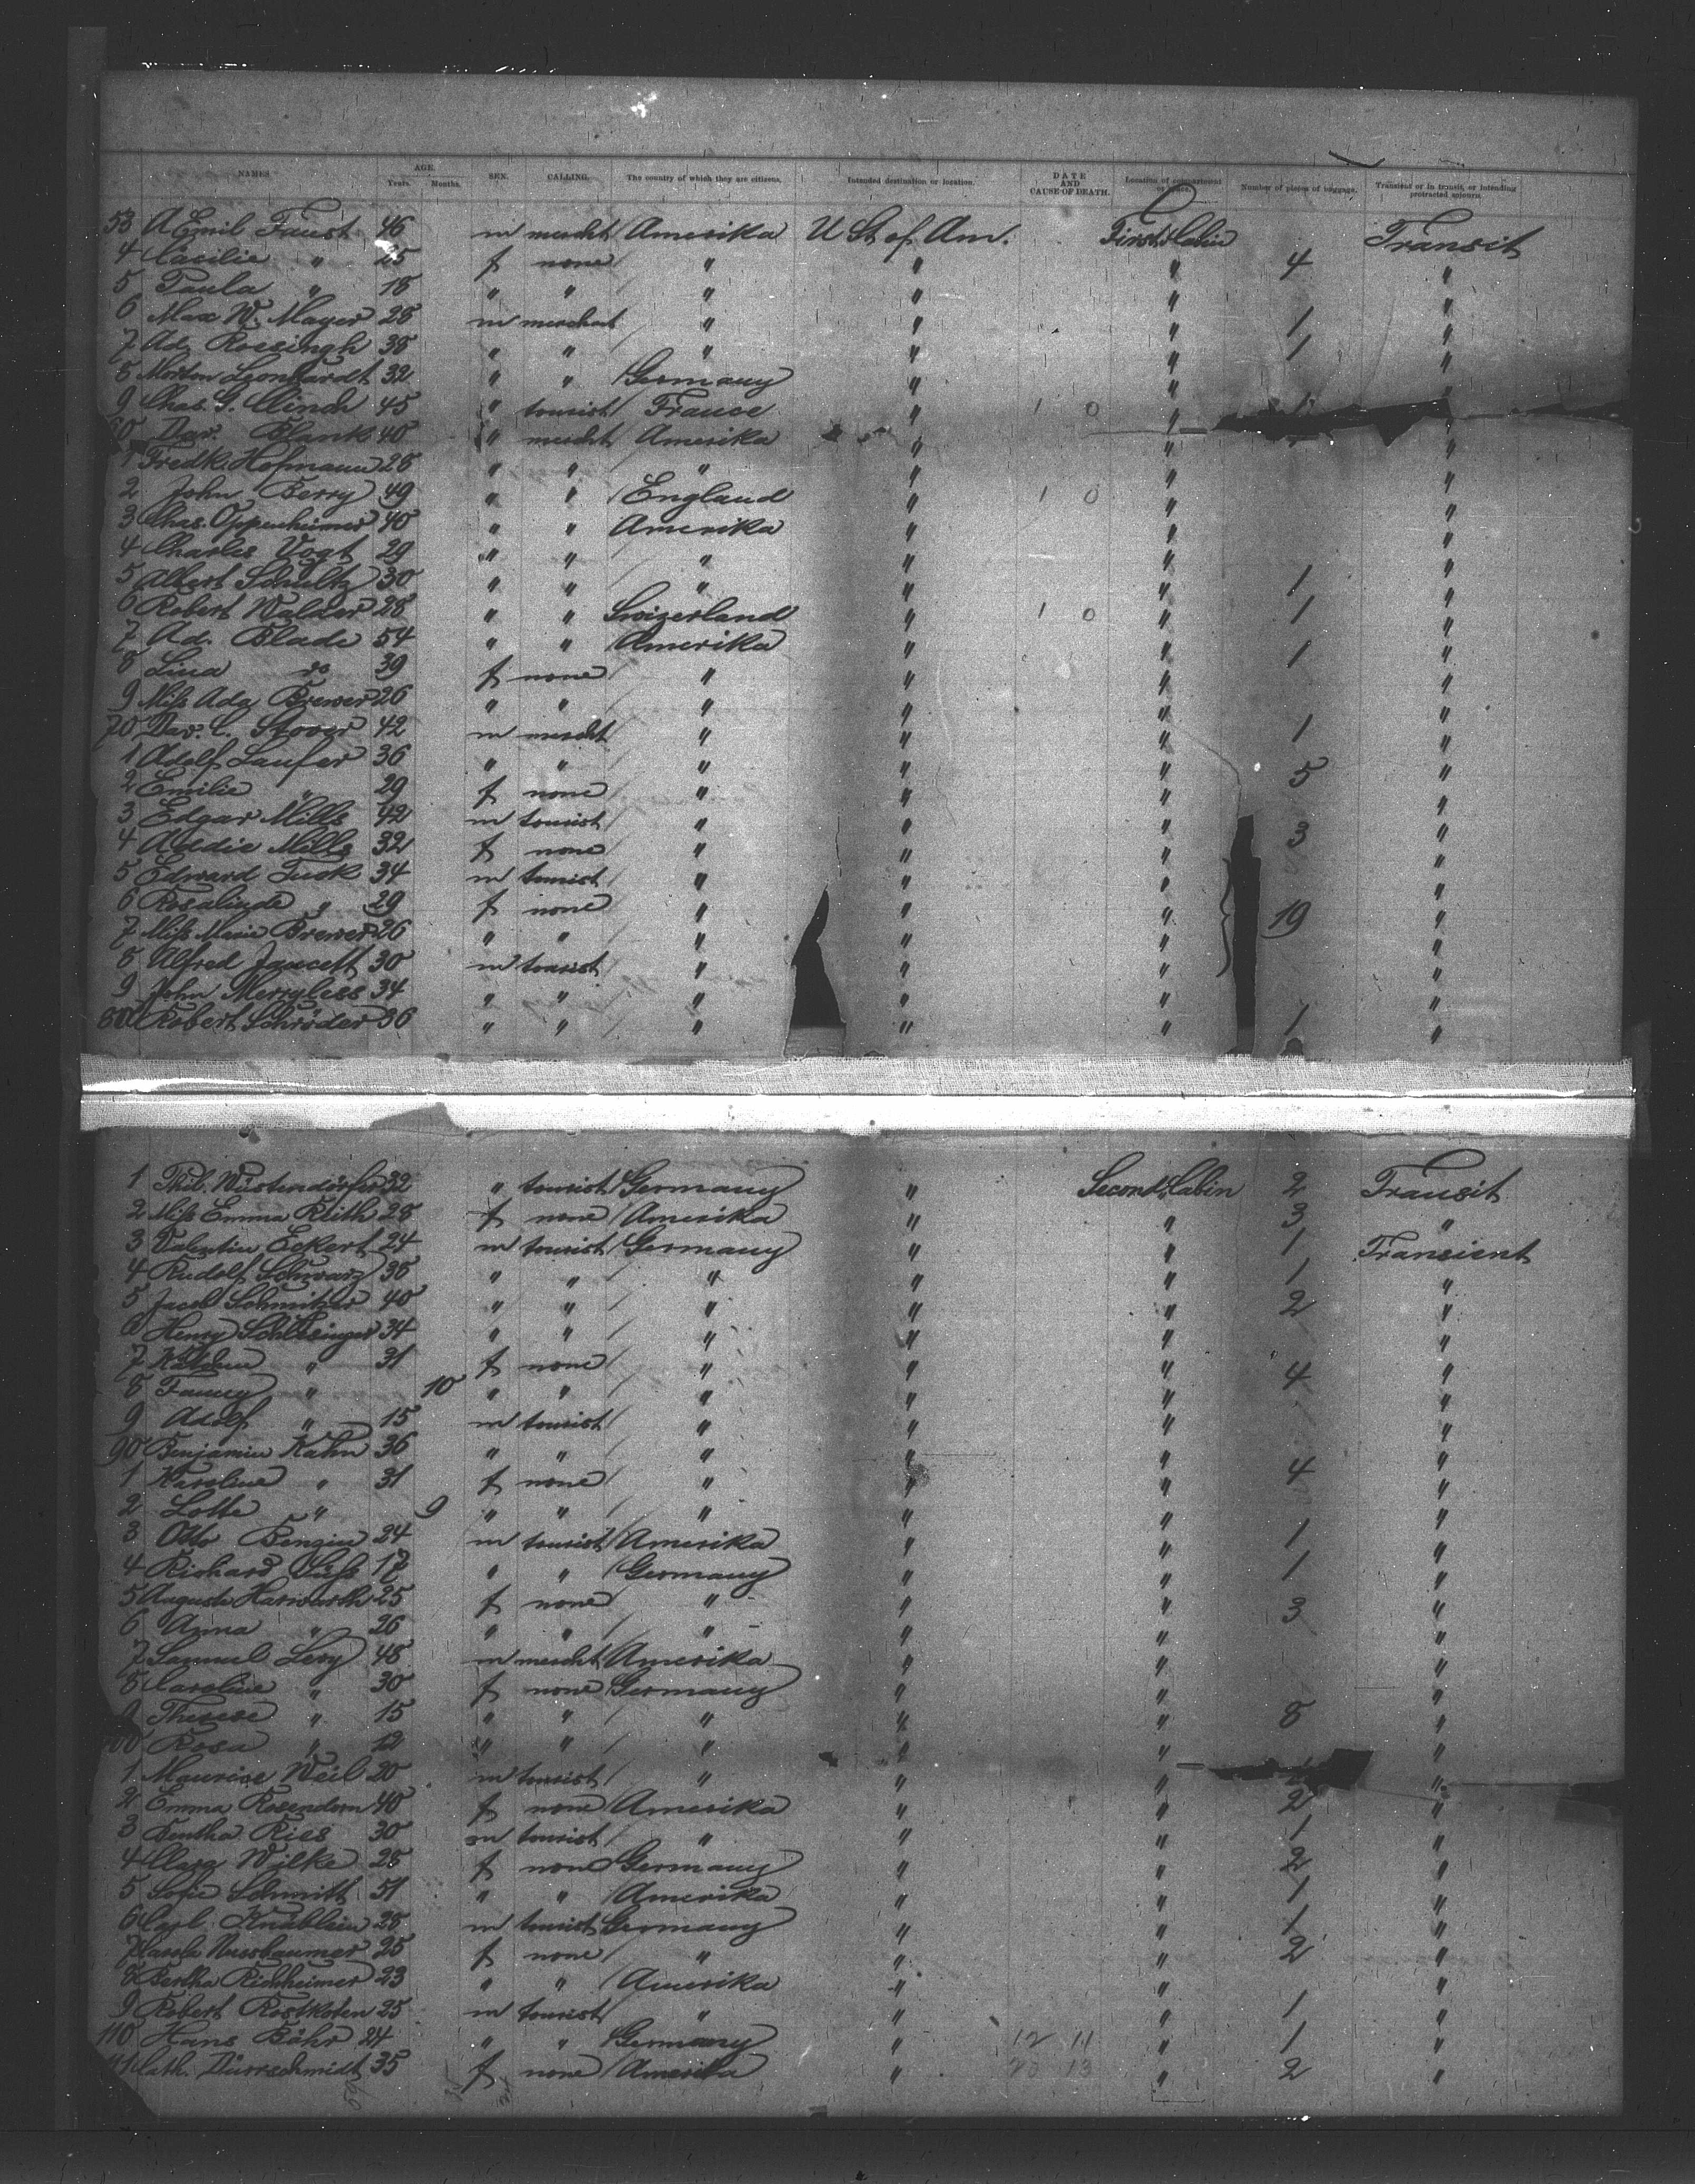 NAMES AGE. Years. Months. SEX. CALLING. The country of which they are citizens. Intended destination or location. DATE AND CAUSE OF DEATH. Location of compartment or space. Number of pieces of luggage. Transient or in transit, or intending protracted sojourn.
53 A Emil Faust 46 m mercht Amerika U St of Am. First Cabin Transit
4 Cäcilie " 25 f none " " " 4 "
5 Paula " 18 " " " " " "
6 Max W. Mayer 28 m merchat " " " 1 "
7 Ad. Roesingh 38 " " " " " 1 "
8 Morton Leonhardt 32 " " Germany " " "
9 Chas. G. Clinch 45 " tourist France " 1 0 " 1 "
60 Dav. Blank 40 " mercht Amerika " " "
1 Fredk. Hofmann 28 " " " " " "
2 John Berry 49 " " England " 1 0 " "
3 Chas. Oppenheimer 40 " " Amerika " " "
4 Charles Vogt 29 " " " " " "
5 Albert Schultz 30 " " " " " 1 "
6 Robert Walder 28 " " Swizerland " 1 0 " 1 "
7 Ad. Blade 54 " " Amerika " " 1 "
8 Lina do 39 f none " " " "
9 Miss Ada Brewer 26 " " " " " "
70 Dav. C. Stover 42 m mercht " " " 1 "
1 Adolf Laufer 36 " " " " " 5 "
2 Emilie " 29 f none " " " "
3 Edgar Mills 42 m tourist " " " 3 "
4 Addie Mills 32 f none " " " "
5 Edward Tuck 34 m tourist " " " "
6 Rosalinde " 29 f none " " " 19 "
7 Miss Marie Brewer 26 " " " " " "
8 Alfred Faucett 30 m tourist " " " "
9 John Merryless 34 " " " " " "
80 Robert Schröder 36 " " " " " 1 "
1 Phil. Wüstendörfer 32 " tourist Germany " Second Cabin 2 Transit
2 Miss Emma Reith 28 f none Amerika " " 3 "
3 Valentin Eckert 24 m tourist Germany " " 1 Transient
4 Rudolf Schwarz 38 " " " " " 1 "
5 Jacob Schmitzer 40 " " " " " 2 "
6 Henry Schlesinger 34 " " " " " "
7 " 31 f none " " " 4 "
8 Fanny " 10 " " " " " "
9 Adolf " 15 m tourist " " " "
90 Benjamin Kahn 36 " " " " " "
1 Karoline " 31 f none " " " 4 "
2 Lotte " 9 " " " " " "
3 Otto Bengin 24 m tourist Amerika " " 1 "
4 Richard 17 " " Germany " " 1 "
5 Auguste Harwarth 25 f none " " " 3 "
6 Anna " 26 " " " " " "
7 Samuel Levy 48 m mercht Amerika " " "
8 Caroline " 30 f none Germany " " "
9 Therese " 15 " " " " " 8 "
100 Rosa " 12 " " " " " "
1 Maurice Weil 20 m tourist " " " "
2 Emma Rosendorn 40 f none Amerika " " 2 "
3 Bentha Ries 30 m tourist " " " 1 "
4 Clara Wilke 28 f none Germany " " 2 "
5 Sofie Schmitt 51 " " Amerika " " 1 "
6 Carl Knäblein 28 m tourist Germany " " 1 "
7 Carola Nussbaumer 25 f none " " " 2 "
8 Bertha Richheimer 23 " " Amerika " " "
9 Robert Rostkoten 25 m tourist " " " 1 "
110 Hans Bähr 24 " " Germany " 12 11 " 1 "
111 Cath. Dürrschmidt 35 f none Amerika " 13 " 2 "